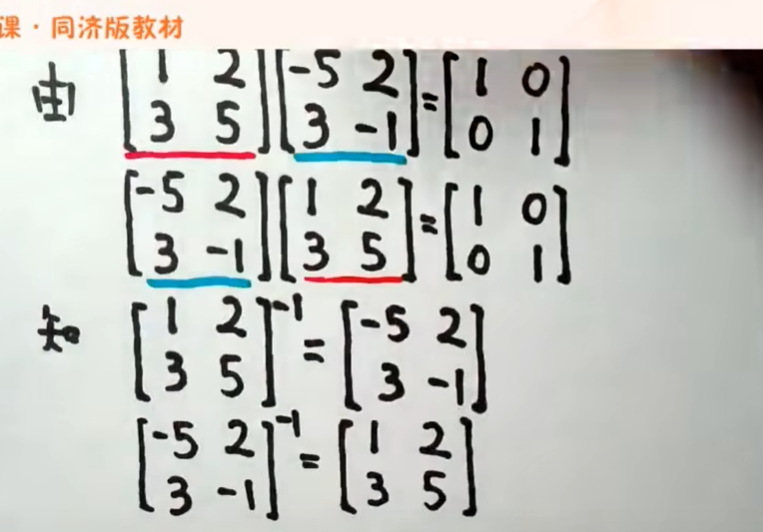 课·同济版教材
由 [1 2
3 5] [-5 2
3 -1] = [1 0
0 1]
[-5 2
3 -1] [1 2
3 5] = [1 0
0 1]
知 [1 2
3 5]^-1 = [-5 2
3 -1]
[-5 2
3 -1]^-1 = [1 2
3 5]